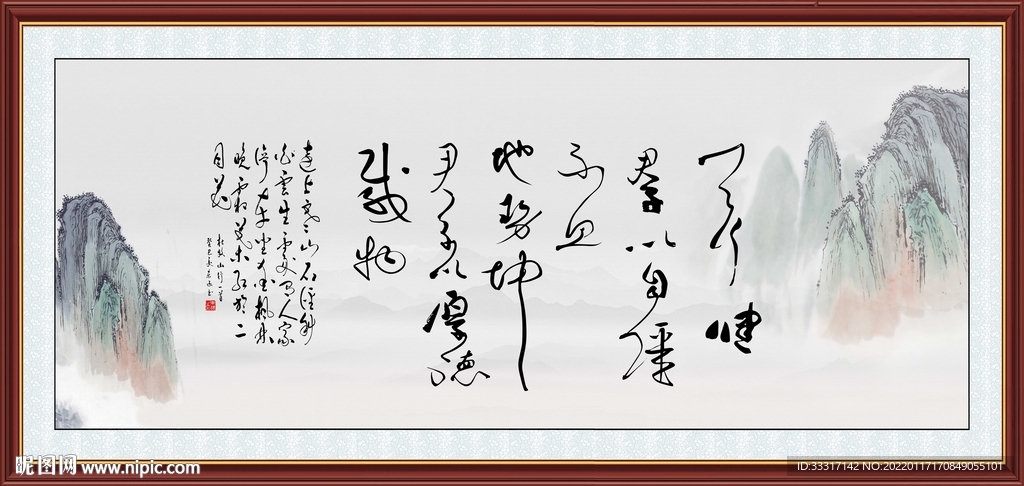 天行健
君子以自強
不息
地勢坤
君子以厚德
載物
遠上寒山石徑斜
白雲生處有人家
停車坐愛楓林
晚霜葉紅於二
月花
杜牧山行一首
昵图网 www.nipic.com
ID:33317142 NO:20220117170849055101